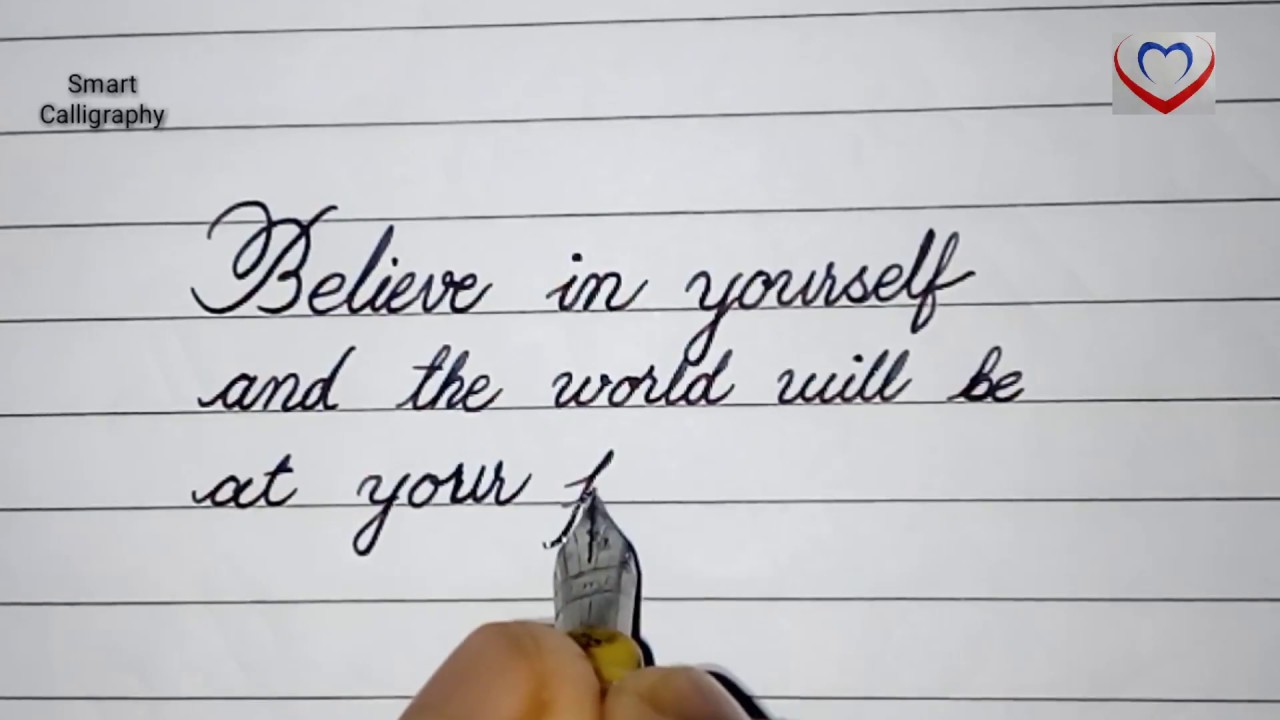 Smart
Calligraphy
Believe in yourself
and the world will be
at your